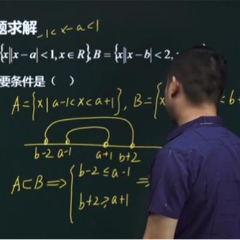 题求解
-1<x-a<1
{x||x-a|<1,x∈R},B={x||x-b|<2,
要条件是( )
A={x|a-1<x<a+1}, B={x
b-2 a-1 a+1 b+2
A⊂B⟹{b-2≤a-1
b+2≥a+1